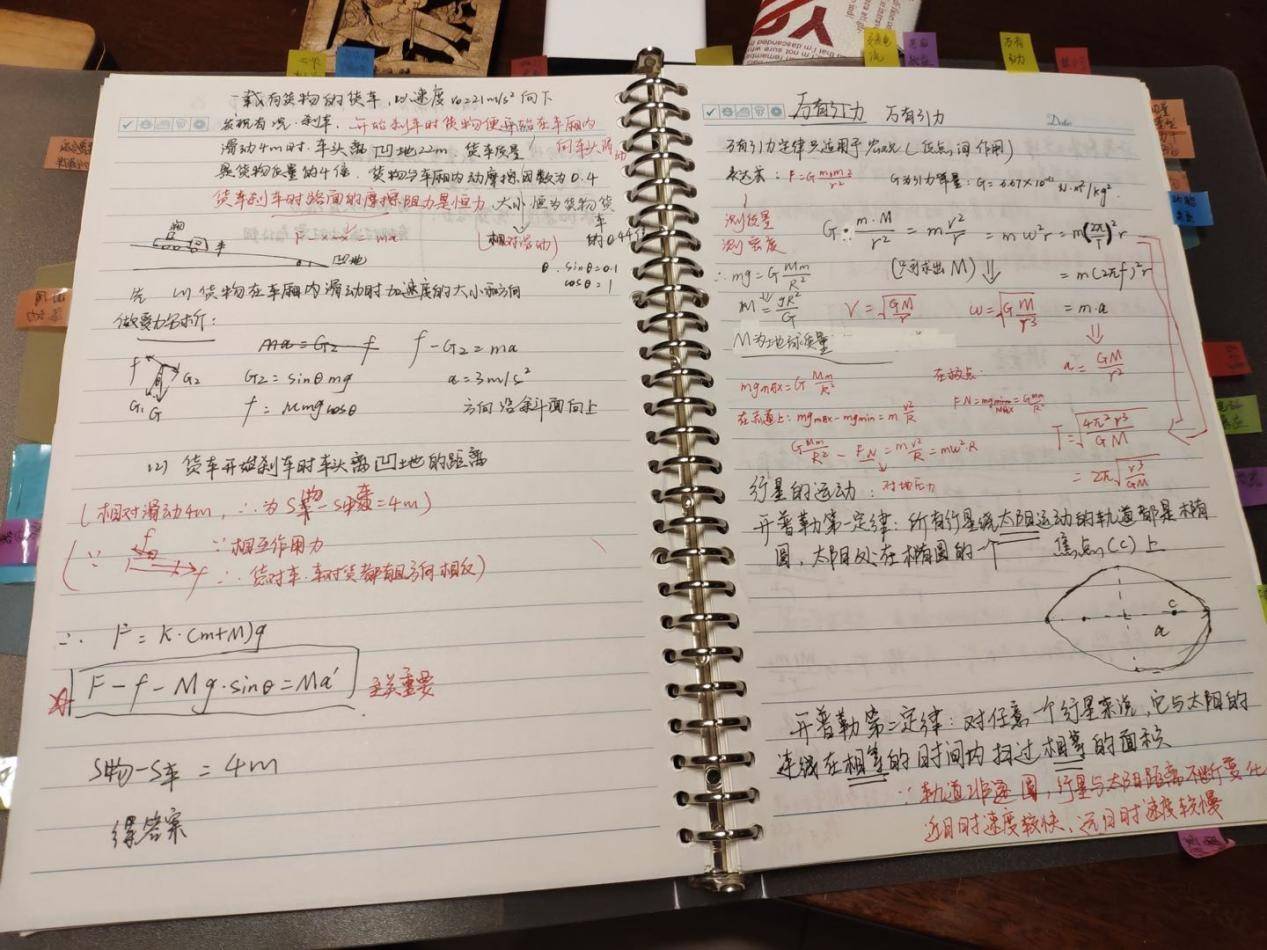 一载有货物的货车,以速度 v₀=21m/s² 向下
发现有况,刹车,开始刹车时货物便开始在车厢内
滑动4m时,车头离凹地22m 货车质量 向车头滑动
是货物质量的4倍,货物与车厢内动摩擦因数为0.4
货车刹车时路面的摩擦阻力是恒力,大小恒为货物货
车
的0.44倍
(相对滑动)
θ. sinθ=0.1
cosθ=1
物
车
凹地
(1) 货物在车厢内滑动时加速度的大小和方向
做受力分析:
ma = G2 - f
f - G2 = ma
f
G2
G1
G
G2 = sinθ mg
a = 3m/s²
f = μmgcosθ
方向沿斜面向上
(2) 货车开始刹车时车头离凹地的距离
(相对滑动4m, ∴为S物-S车=4m)
∵相互作用力
∴货对车,车对货都有且方向相反)
f
f
∴ F = K·(m+M)g
F - f - Mg·sinθ = Ma'
至关重要
S物-S车 = 4m
得答案
万有引力 万有引力
Date
万有引力定律只适用于宏观(质点间作用)
表达式: F=G m₁m₂/r²
G为引力常量: G=6.67×10⁻¹¹ N·m²/kg²
测质量
测密度
G·m·M/r² = m v²/r = mω²r = m(2π/T)²r
∴mg=G Mm/R²
(只可求出M)
= m(2πf)²r
M = gR²/G
V = √(GM/r)
ω = √(GM/r³)
= m·a
M为地球质量
a = GM/r²
mgmax=G Mm/R²
在极点:
在赤道上: mgmax-mgmin=m v²/R
FN=mgmax=G Mm/R²
G Mm/R² - FN = m v²/R = mω²·R
对地压力
T=√(4π²r³/GM)
= 2π√(r³/GM)
行星的运动:
开普勒第一定律:所有行星绕太阳运动的轨道都是椭
圆,太阳处在椭圆的一个 焦点(C)上
c
a
开普勒第二定律:对任意一个行星来说,它与太阳的
连线在相等的时间内扫过相等的面积
∵轨道非逐圆,行星与太阳距离不断变化
近日时速度较快、远日时速度较慢